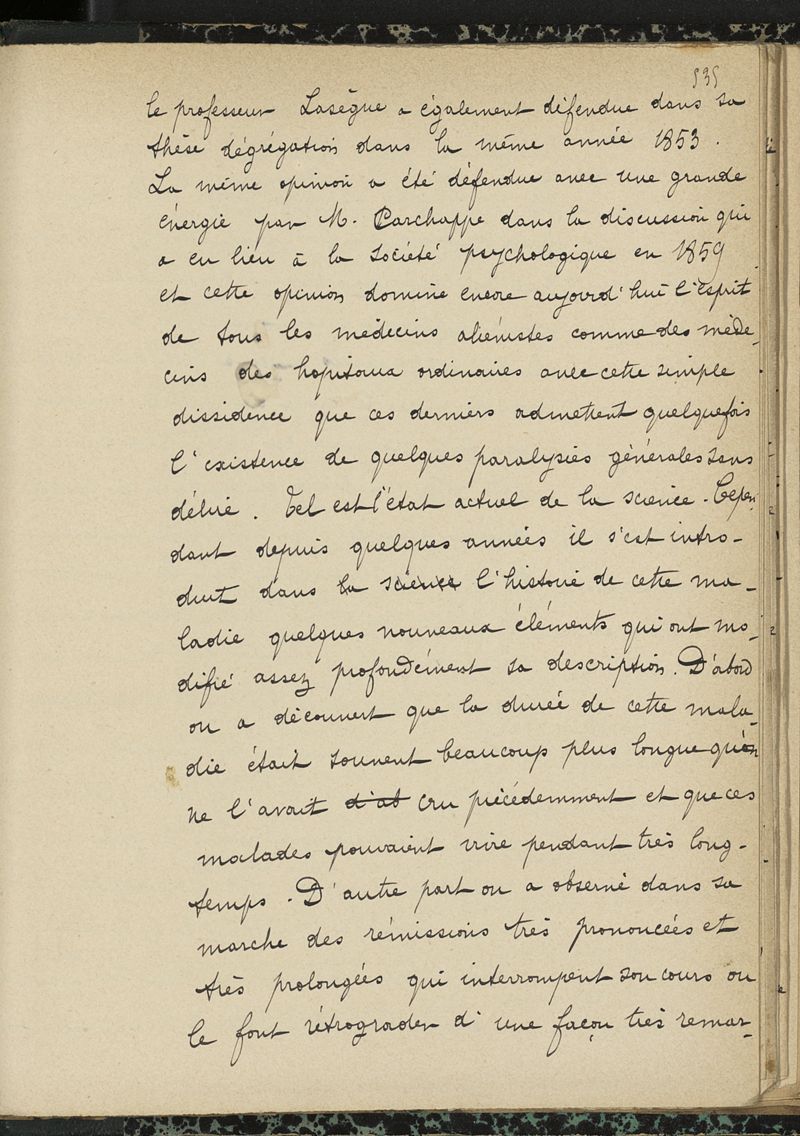 535
le professeur Lasègue a également défendue dans sa
thèse dégrégation dans la même année 1853.
La même opinion a été défendue avec une grande
énergie par M. Parchappe dans la discussion qui
a eu lieu à la société psychologique en 1859
et cette opinion domine encore aujourd'hui l'esprit
de tous les médecins aliénistes comme des méde-
cins des hopitaux ordinaires avec cette simple
dissidence que ces derniers admettent quelquefois
l'existence de quelques paralysies générales sans
délire. Tel est l'état actuel de la science. Cepen
dant depuis quelques années il s'est intro-
duit dans la science l'histoire de cette ma-
ladie quelques nouveaux éléments qui ont mo-
difié assez profondément sa description. D'abord
on a découvert que la durée de cette mala-
die était souvent beaucoup plus longue qu'on
ne l'avait d'ab cru précédemment et que ces
malades pouvaient vivre pendant très long-
temps. D'autre part on a observé dans sa
marche des rémissions très prononcées et
très prolongées qui interrompent son cours ou
le font rétrograder d'une façon très remar-